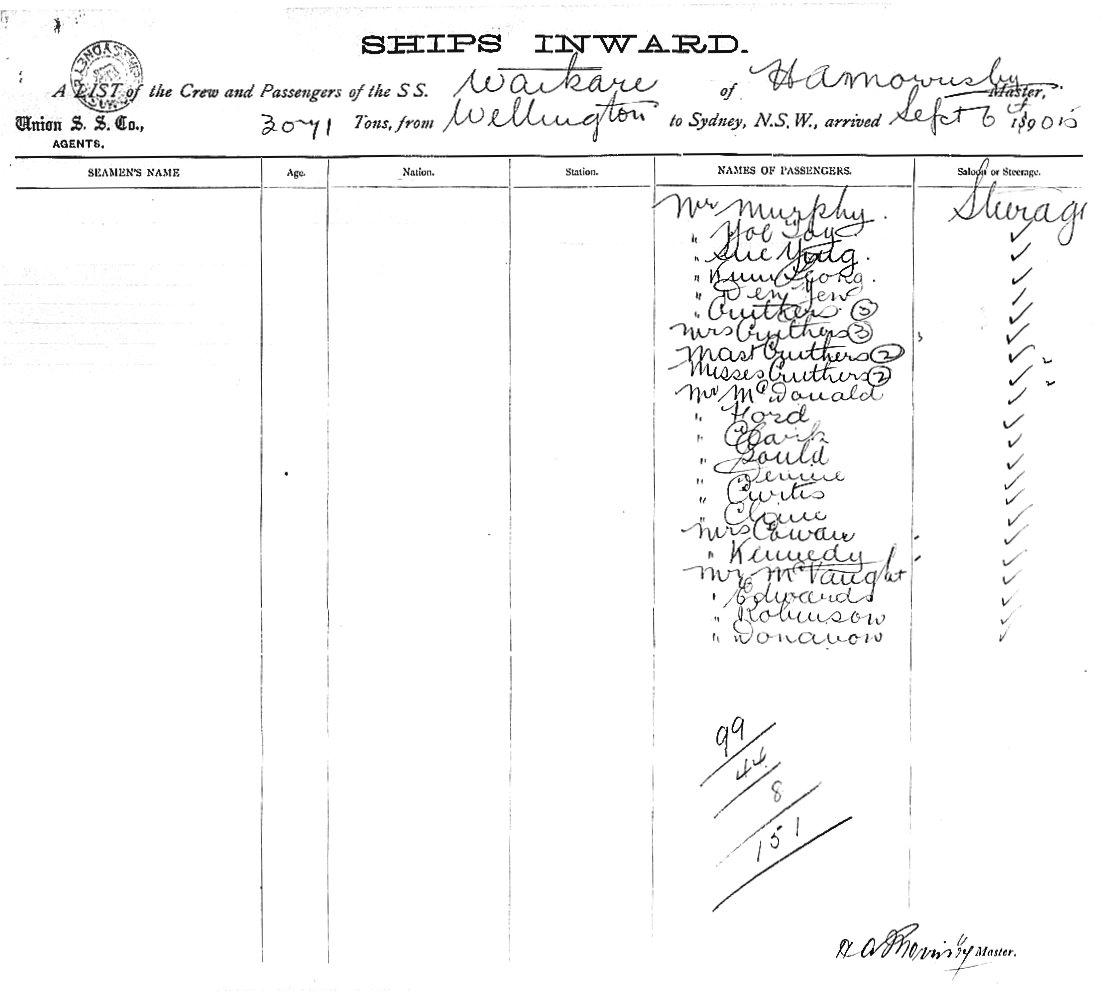 SHIPS INWARD.
A LIST of the Crew and Passengers of the S S. Waikare of H A Mornisby Master,
Union S. S. Co., 3071 Tons, from Wellington to Sydney, N.S.W., arrived Sept 6th 1905
AGENTS.
SEAMEN'S NAME Age. Nation. Station. NAMES OF PASSENGERS. Saloon or Steerage.
Mr Murphy. Steerage
" Hoe
" Sue ✓
" ✓
" ✓
" Cruthers ✓
Mrs Cruthers (3) ✓
Mast Cruthers (2) ✓ 2
Misses Cruthers (2) ✓ 2
Mr McDonald ✓
" Hord ✓
" Clark ✓
" Gould ✓
" ✓
" Curtis ✓
" Cline ✓
Mrs Cowan ✓
" Kennedy ✓
Mr McVaught ✓
" Edwards ✓
" Robinson ✓
" Donavon ✓
99
44
8
151
H A Mornisby Master.